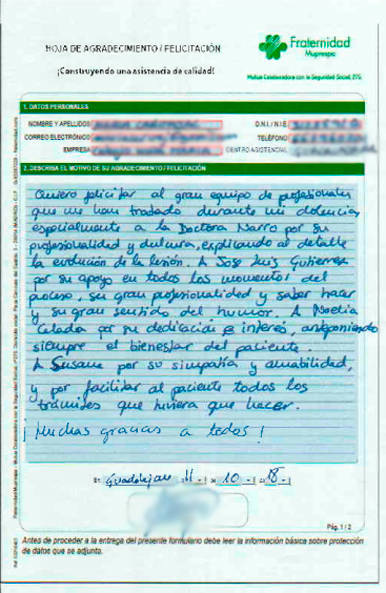 HOJA DE AGRADECIMIENTO / FELICITACIÓN
¡Construyendo una asistencia de calidad!
Fraternidad
Muprespa
Mutua Colaboradora con la Seguridad Social, 275
1. DATOS PERSONALES
NOMBRE Y APELLIDOS
D.N.I. / N.I.E.
CORREO ELECTRÓNICO
TELÉFONO
EMPRESA
CENTRO ASISTENCIAL
2. DESCRIBA EL MOTIVO DE SU AGRADECIMIENTO / FELICITACIÓN
Quiero felicitar al gran equipo de profesionales
que me han tratado durante mi dolencia,
especialmente a la Doctora Narro por su
profesionalidad y dulzura, explicando al detalle
la evolución de la lesión. A Jose Luis Gutierrez
por su apoyo en todos los momentos del
proceso, su gran profesionalidad y saber hacer
y su gran sentido del humor. A Noelia
Calada por su dedicación e interés, anteponiendo
siempre el bienestar del paciente.
A Susana por su simpatía y amabilidad,
y por facilitar al paciente todos los
trámites que tuviera que hacer.
¡Muchas gracias a todos!
En Guadalajara 11 - 10 - 18 -
Pág. 1 / 2
Antes de proceder a la entrega del presente formulario debe leer la información básica sobre protección
de datos que se adjunta.